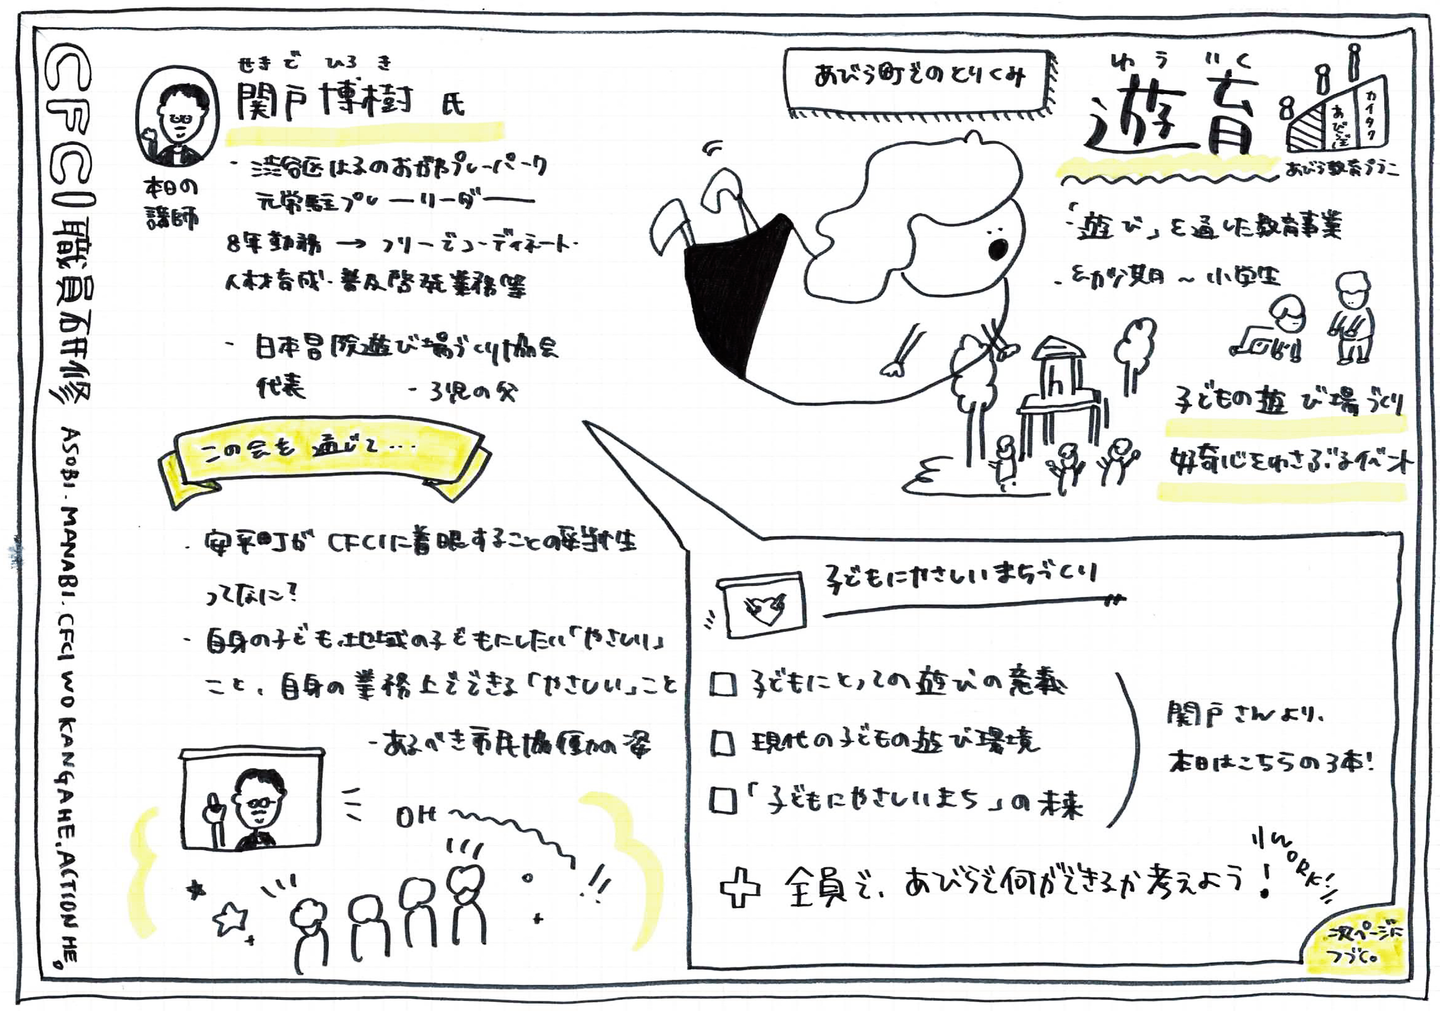 CFCI 職員研修
ASOBI.MANABI.CFCI WO KANGAHE.ACTION HE。
本日の
講師
せきど ひろき
関戸博樹 氏
・渋谷区はるのおがわプレーパーク
元常駐プレーリーダー
8年勤務→フリーでコーディネート・
人材育成・普及啓発業務等
・日本冒険遊び場づくり協会
代表 ・3児の父
この会を通じて…
・安平町がCFCIに着眼することの妥当性
ってなに?
・自身の子ども、地域の子どもにしたい「やさしい」
こと、自身の業務上でできる「やさしい」こと
・あるべき市民協働の姿
OH
!!
あびら町でのとりくみ
ゆういく
遊育
カイタク
あびら
あびら教育プラン
・「遊び」を通した教育事業
・乳幼児期〜小学生
子どもの遊び場づくり
好奇心をゆさぶるイベント
子どもにやさしいまちづくり
□ 子どもにとっての遊びの意義
□ 現代の子どもの遊び環境
□ 「子どもにやさしいまち」の未来
関戸さんより、
本日はこちらの3本!
＋ 全員で、あびらで何ができるか考えよう!
WORK!!
次ページに
つづく。